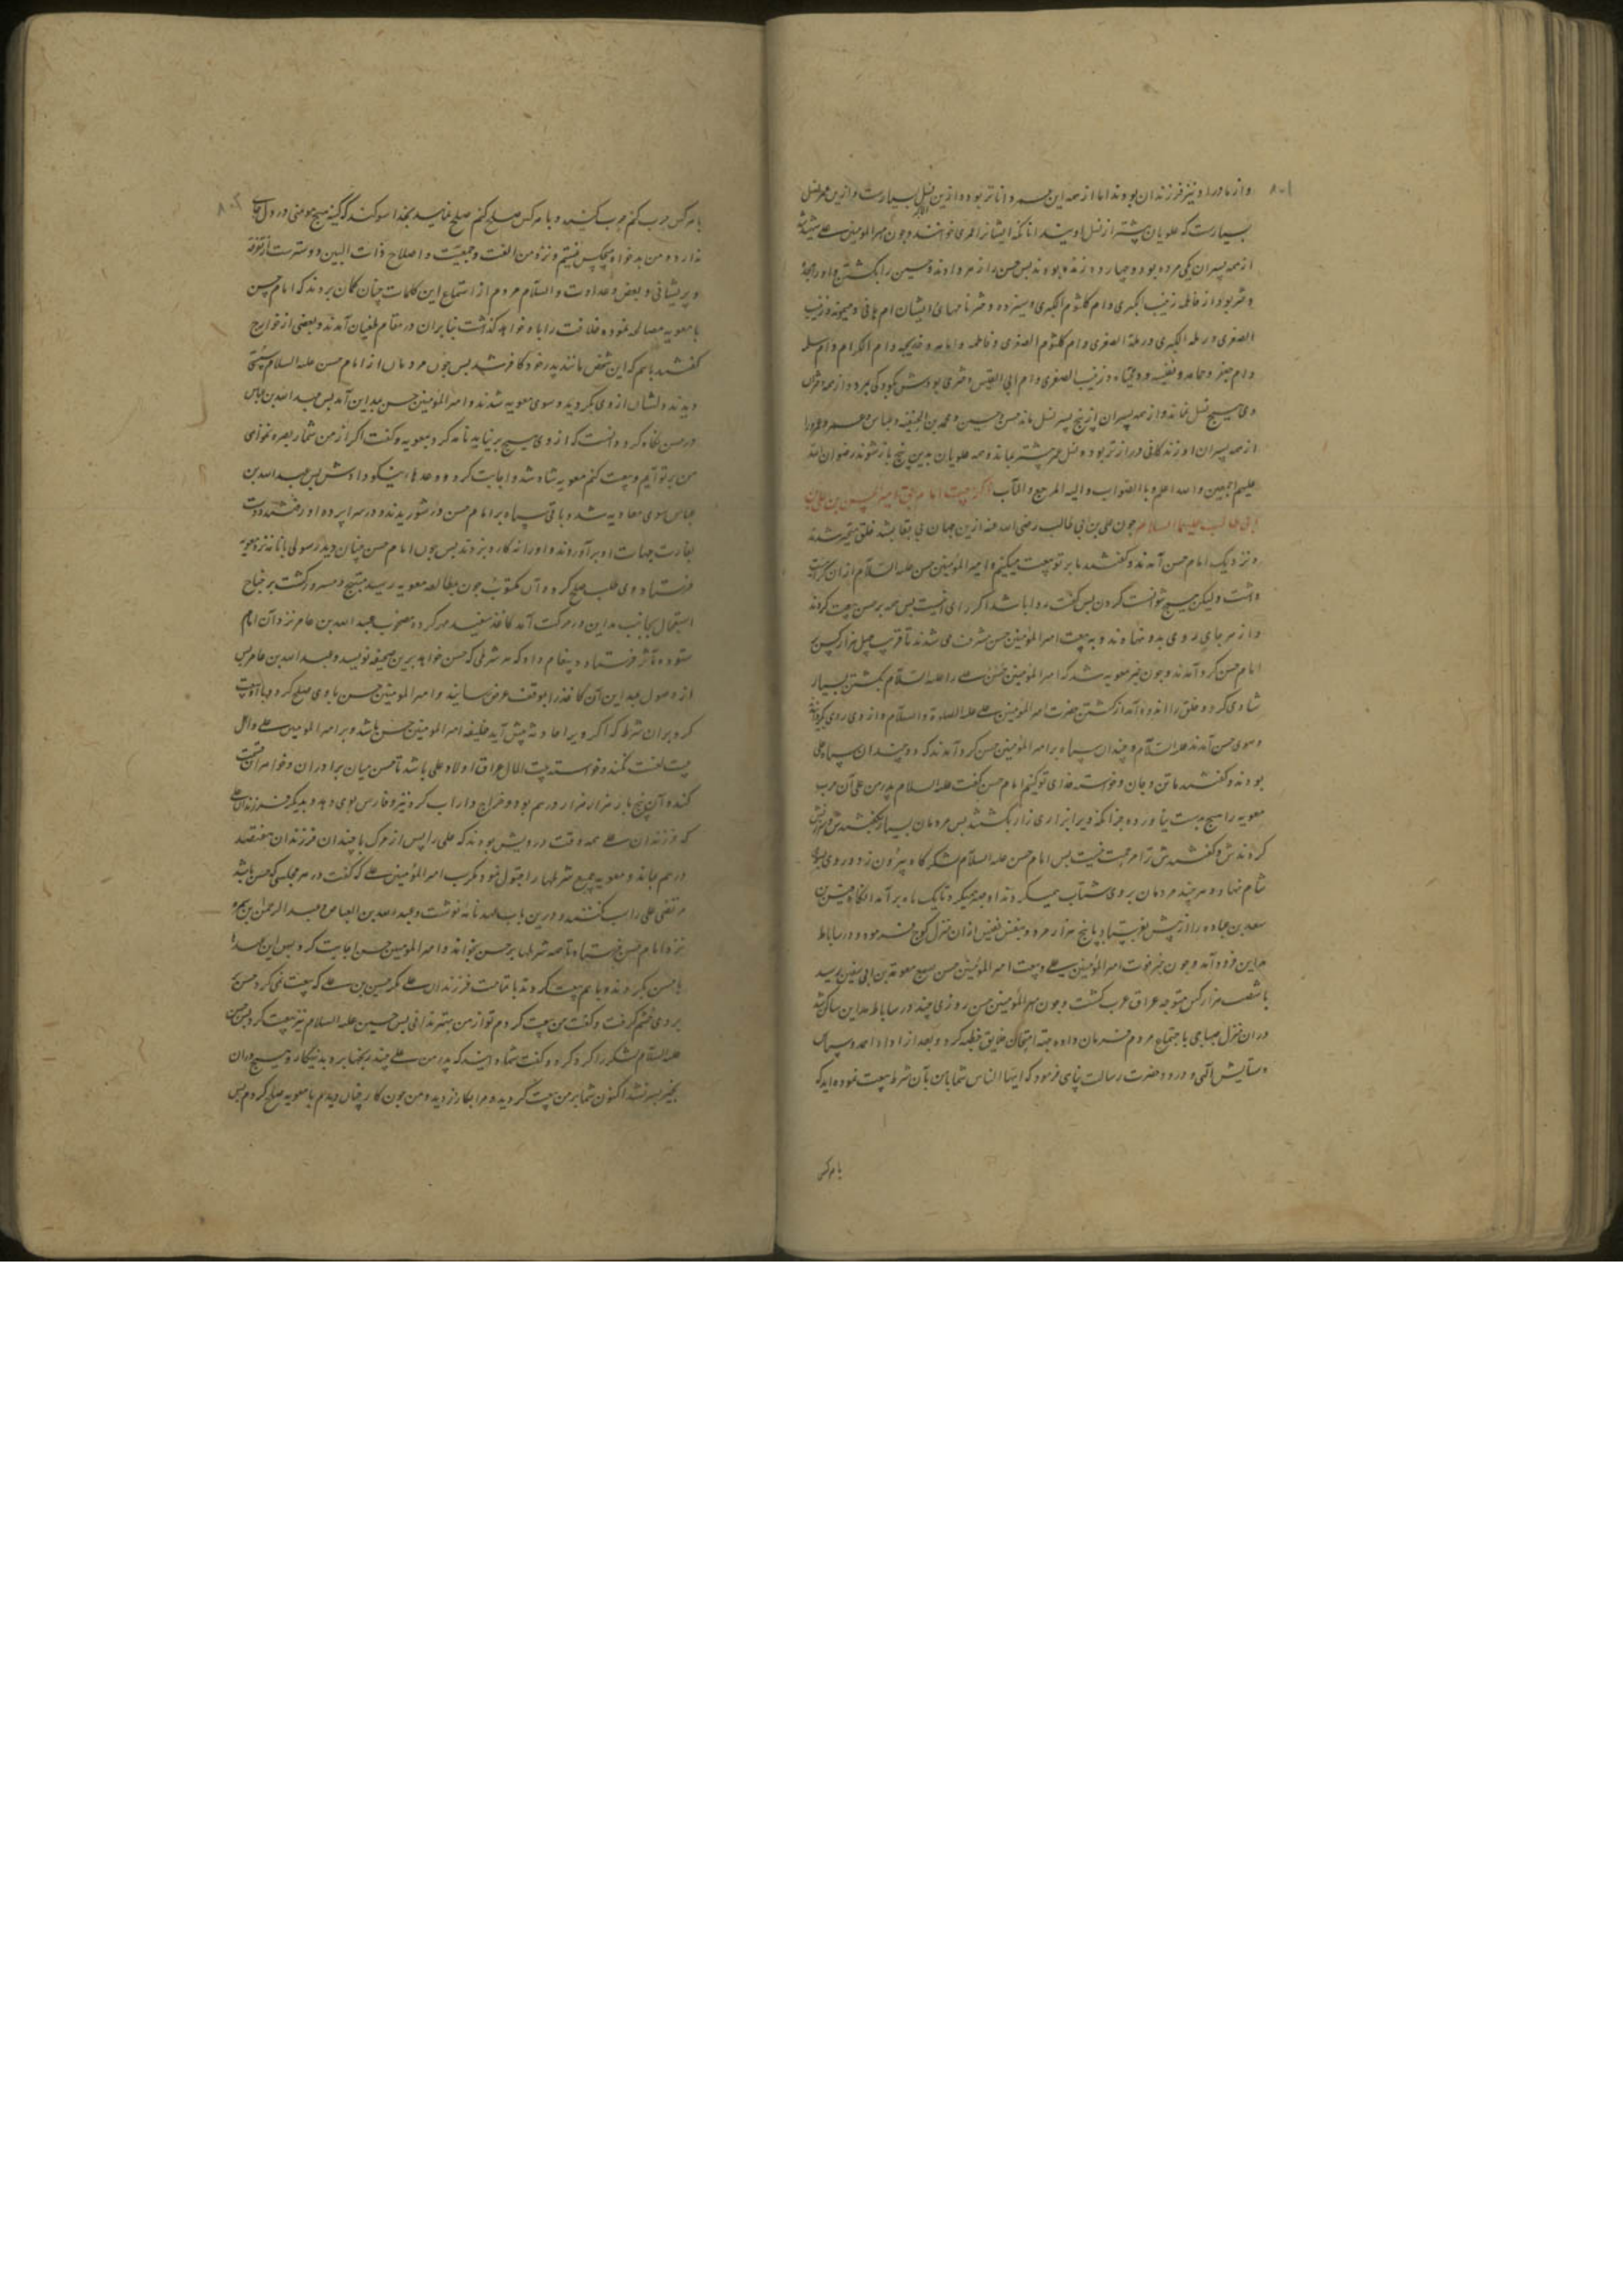 ۸۰۱
و از مادر او نیز فرزندان بودند اما از همه این عمر داناتر بود و ازین نسل بسیارست و ازین عمر نسل
بسیارست که علویان بیشتر از نسل اویند انانکه ایشانرا العمری خوانند و چون امیر المومنین علی شهید شد
از همه پسران یکی مرده بود و چهارده زنده بودند پس حسن را زهر دادند و حسین را بکشتن و او را هجده
دختر بود از فاطمه زینب الکبری و ام کلثوم الکبری و سیزده دختر نامهای ایشان ام هانی و میمونه و زینب
الصغری و رملة الکبری و رملة الصغری و ام کلثوم الصغری و فاطمه و امامه و خدیجه و ام الکرام و ام سلمه
و ام جعفر و جمانه و نفیسه و زینب الصغری و ام ابی القیس دختری بودش کودکی بمرد و از همه دختران
وی هیچ نسل نماند و از همه پسران از پنج پسر نسل ماند حسن و حسین و محمد بن الحنیفه و عباس و عمر و عمر را
از همه پسران او زندکانی درازتر بود و نسل عمر بیشتر بماند و همه علویان بدین پنج باز شوند رضوان الله
علیهم اجمعین و الله اعلم و بالصواب و الیه المرجع و المآب ذکر بیعت امام بحق امیر الحسن بن علی بن
ابی طالب علیهما السلام چون علی بن ابی طالب رضی الله عنه ازین جهان بی بقا بشد خلق متحیر شدند
و نزدیک امام حسن آمدند و کفتند ما بر تو بیعت میکنیم و امیر المومنین حسن علیه السلام ازان کراهیت
داشت و لیکن هیچ نتوانست کردن پس کفت روا باشد اکر رای نیست پس همه بر حسن بیعت کردند
و از هر جای روی بدو نهادند و به بیعت امیر المومنین حسن مشرف می شدند تا قریب چهل هزار کس بر
امام حسن کرد آمدند و چون خبر معویه شد که امیر المومنین حسن علی را علیه السلام بکشتن بسیار
شادی کرد و خلق را اندوه آمد از کشتن حضرت امیر المومنین علی علیه الصلوة و السلام و از وی روی بکردانیدند
و سوی حسن آمدند علیه السلام و چندان سپاه بر امیر المومنین حسن کرد آمدند که دو چندان سپاه علی
بودند و کفتند ما تن و جان و خواسته فدای تو کنیم امام حسن کفت علیه السلام پدر من علی آن حرب
معویه را هیچ بدست نیاورده جز انکه ویرا بزاری زار بکشتند پس مردمان بسیار بکفتندش و سرزنش
کردندش و کفتندش ترا مر حجت نیست پس امام حسن علیه السلام لشکرکاه بیرون زد و روی سوی
شام نهاد و هر چند مردمان بر وی شتاب همیکردند او صبر همیکرد تا یک ماه برآمد انکاه قیس بن
سعد بن عباده را از پیش بفرستاد با پنج هزار مرد و بنفس نفیس ازان منزل کوچ فرموده و در ساباط
مداین فرود آمد و چون خبر فوت امیر المومنین علی و بیعت امیر المومنین حسن بسمع معویة بن ابی سفین رسید
با شصت هزار کس متوجه عراق عرب کشت و چون امیر المومنین حسن روزی چند در ساباط مداین ساکن شد
دران منزل صباحی باجتماع مردم فرمان داده جهة امتحان خلایق خطبه کرد و بعد از ادا احمد و سپاس
و ستایش آلهی و درود حضرت رسالت پناهی فرمود که ایها الناس شما با من بآن شرط بیعت نموده اید که
با هر کس
۸۰۲
با هر کس حرب کنم حرب کنید و با هر کس صلح کنم صلح نمایید بخدا سوکند که کینه هیچ مومنی در دل جای
ندارد و من بدخواه هیچکس نیستم و نزد من الفت و جمعیت و اصلاح ذات البین دوسترست از تفرقه
و پریشانی و بعض و عداوت و السلام مردم از استماع این کلمات چنان کمان بردند که امام حسن
با معویه مصالحه نموده خلافت را باو خواهد کذاشت بنابران در مقام طغیان آمدند و بعضی از خوارج
کفتند باسم که این شخص مانند پدر خود کافر شد پس چون مردمان از امام حسن علیه السلام سستی
دیدند دلشان از وی بکردید و سوی معویه شدند و امیر المومنین حسن بمداین آمد پس عبد الله بن عباس
در حسن نکاه کرد و دانست که از وی هیچ بر نیاید نامه کرد بمعویه و کفت اکر از من شمار بصره نخواهی
من بر تو آیم و بیعت کنم معویه شاد شد و اجابت کرد و وعدها نیکو دادش پس عبد الله بن
عباس سوی معاویه شد و باقی سپاه بر امام حسن در شوریدند و در سراپرده او رفتند و دست
بغارت جهات او برآوردند و او را نه کارد بزدند پس چون امام حسن چنان دید رسولی با نامه نزد معویه
فرستاد و وی طلب صلح کرد و آن مکتوب چون بمطالعه معویه رسید مبتهج و مسرور کشت بر جناح
استعجال بجانب مداین در حرکت آمد کاغذ سفید مهر کرده مصحوب عبد الله بن عامر نزد آن امام
ستوده مآثر فرستاد و پیغام داد که هر شرطی که حسن خواهد برین صحیفه نویسد و عبد الله بن عامر پس
از وصول بمداین آن کاغذ را بموقف عرض رسانید و امیر المومنین حسن با وی صلح کرد و با او بیعت
کرد بران شرط که اکر ویرا حادثه پیش آید خلیفه امیر المومنین حسن باشد و بر امیر المومنین علی و آل
بیت لعنت نکنند و خواسته بیت المال عراق اولاد علی باشد تا حسن میان برادران و خواهران قسمت
کند و آن پنج بار هزار هزار درم بود و خراج داراب کرد نیز و فارس بوی دهد و بدیکر فرزندان علی
که فرزندان علی همه وقت درویش بودند که علی را پس از مرک با چندان فرزندان هفتصد
درم بماند و معویه جمیع شرطها را قبول نمود مکر سب امیر المومنین علی که کفت در هر مجلسی که حسن باشد
مرتضی علی را سب نکنند و درین باب عهد نامه نوشت و عبد الله بن العاص و عبد الرحمن بن سمره
نزد امام حسن فرستاد تا همه شرطها بر حسن بخواند و امیر المومنین حسن اجابت کرد پس این عهد را
با حسن بکردند و با هم بیعت کردند با تمامت فرزندان علی مکر حسین بن علی که بیعت نمی کرد حسن بر
بر وی خشم کرفت و کفت من بیعت کردم تو از من بهتر ندانی پس حسین علیه السلام نیز بیعت کرد پس حسن
علیه السلام لشکر را کرد کرد و کفت شما دانید که پدر من علی چند رنجها برد بدین کار و هیچ دران
بخیر بسر نشد اکنون شما بر من بیعت کردید و مرا بکارزار دیدید و من چون کار چنان دیدم با معویه صلح کردم پس